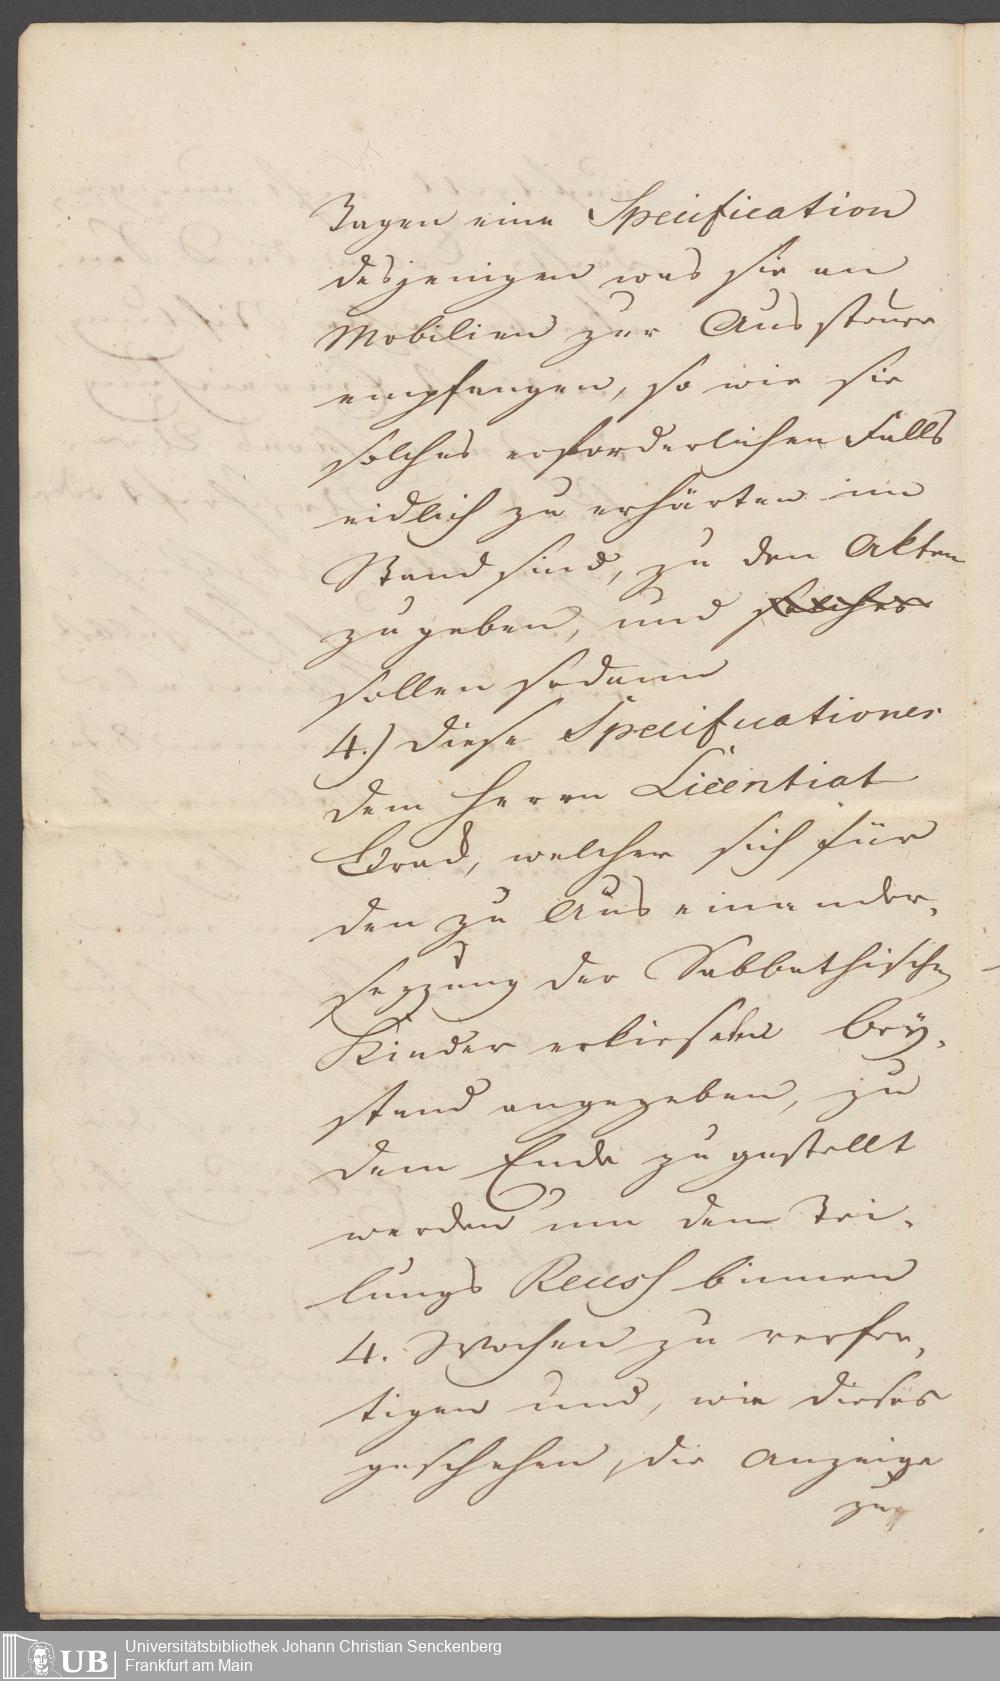 Tagen eine Specification
desjenigen was sie an
Mobilien zur Aussteuer
empfangen, so wie sie
solches erforderlichen Falls
eidlich zu erhärten im
Stand sind, zu den Akten
zu geben, und solches
sollen sodann
4.) diese Specificationen
dem Herrn Licentiat
welcher sich für
den zu Auseinander,
sezzung der Sabbathischen
Kinder erkiesten Bey,
stand angegeben, zu
dem Ende zugestellt
werden um den Thei,
lungs Recess binnen
4. Wochen zu verfer,
tigen und, wie dieses
geschehen, die Anzeige
zu
UB
Universitätsbibliothek Johann Christian Senckenberg
Frankfurt am Main